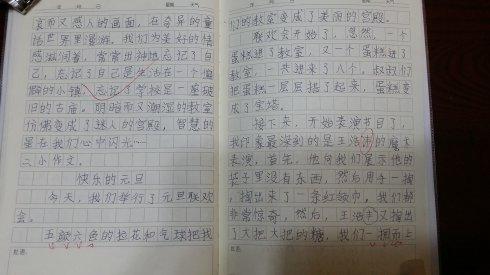 哀而又感人的画面，在奇异的童
话世界里漫游。我们为美好的情
感滋润着，常常出神地忘记了自
己，忘记了自己是生活在一个偏
僻的小镇，忘记了学校是一座破
旧的古庙，明暗而又潮湿的教室
仿佛变成了迷人的宫殿，智慧的
星在我们心中闪光……
二、小作文。
快乐的元旦
今天，我们举行了元旦联欢
会。
五颜六色的拉花和气球把我
批语：
们的教室变成了美丽的宫殿。
联欢会开始了，忽然，一个
蛋糕进了教室，又一个蛋糕进了
教室，一共进来了八个，叔叔们
把蛋糕一层层搭了起来，蛋糕变
成了宝塔。
接下来，开始表演节目了，
我印象最深刻的是王浩沣的魔术
表演，首先，他向我们展示他的
袋子里没有东西，然后用手一掏
，掏出来了一条红领巾，我们都
非常惊奇，然后，王浩沣又掏出
了大把大把的糖，我们一拥而上
批语：